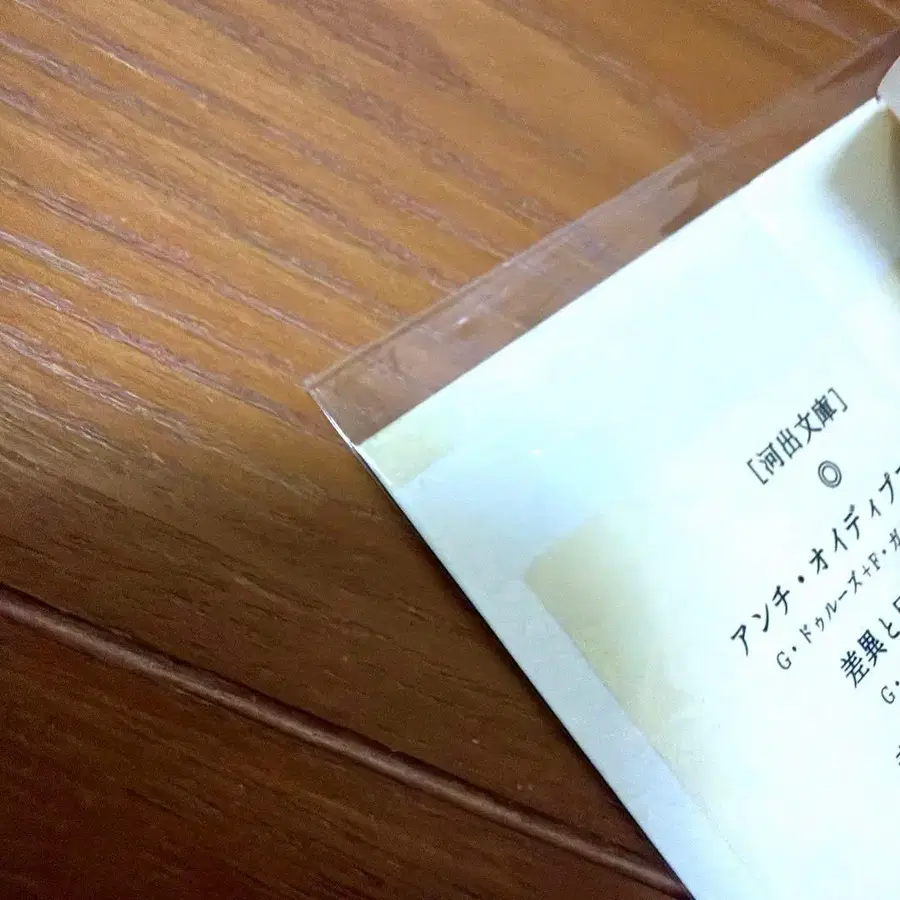 [河出文庫]
◎
アンチ・オイディプ
G・ドゥルーズ+F・ガ
差異と
G・